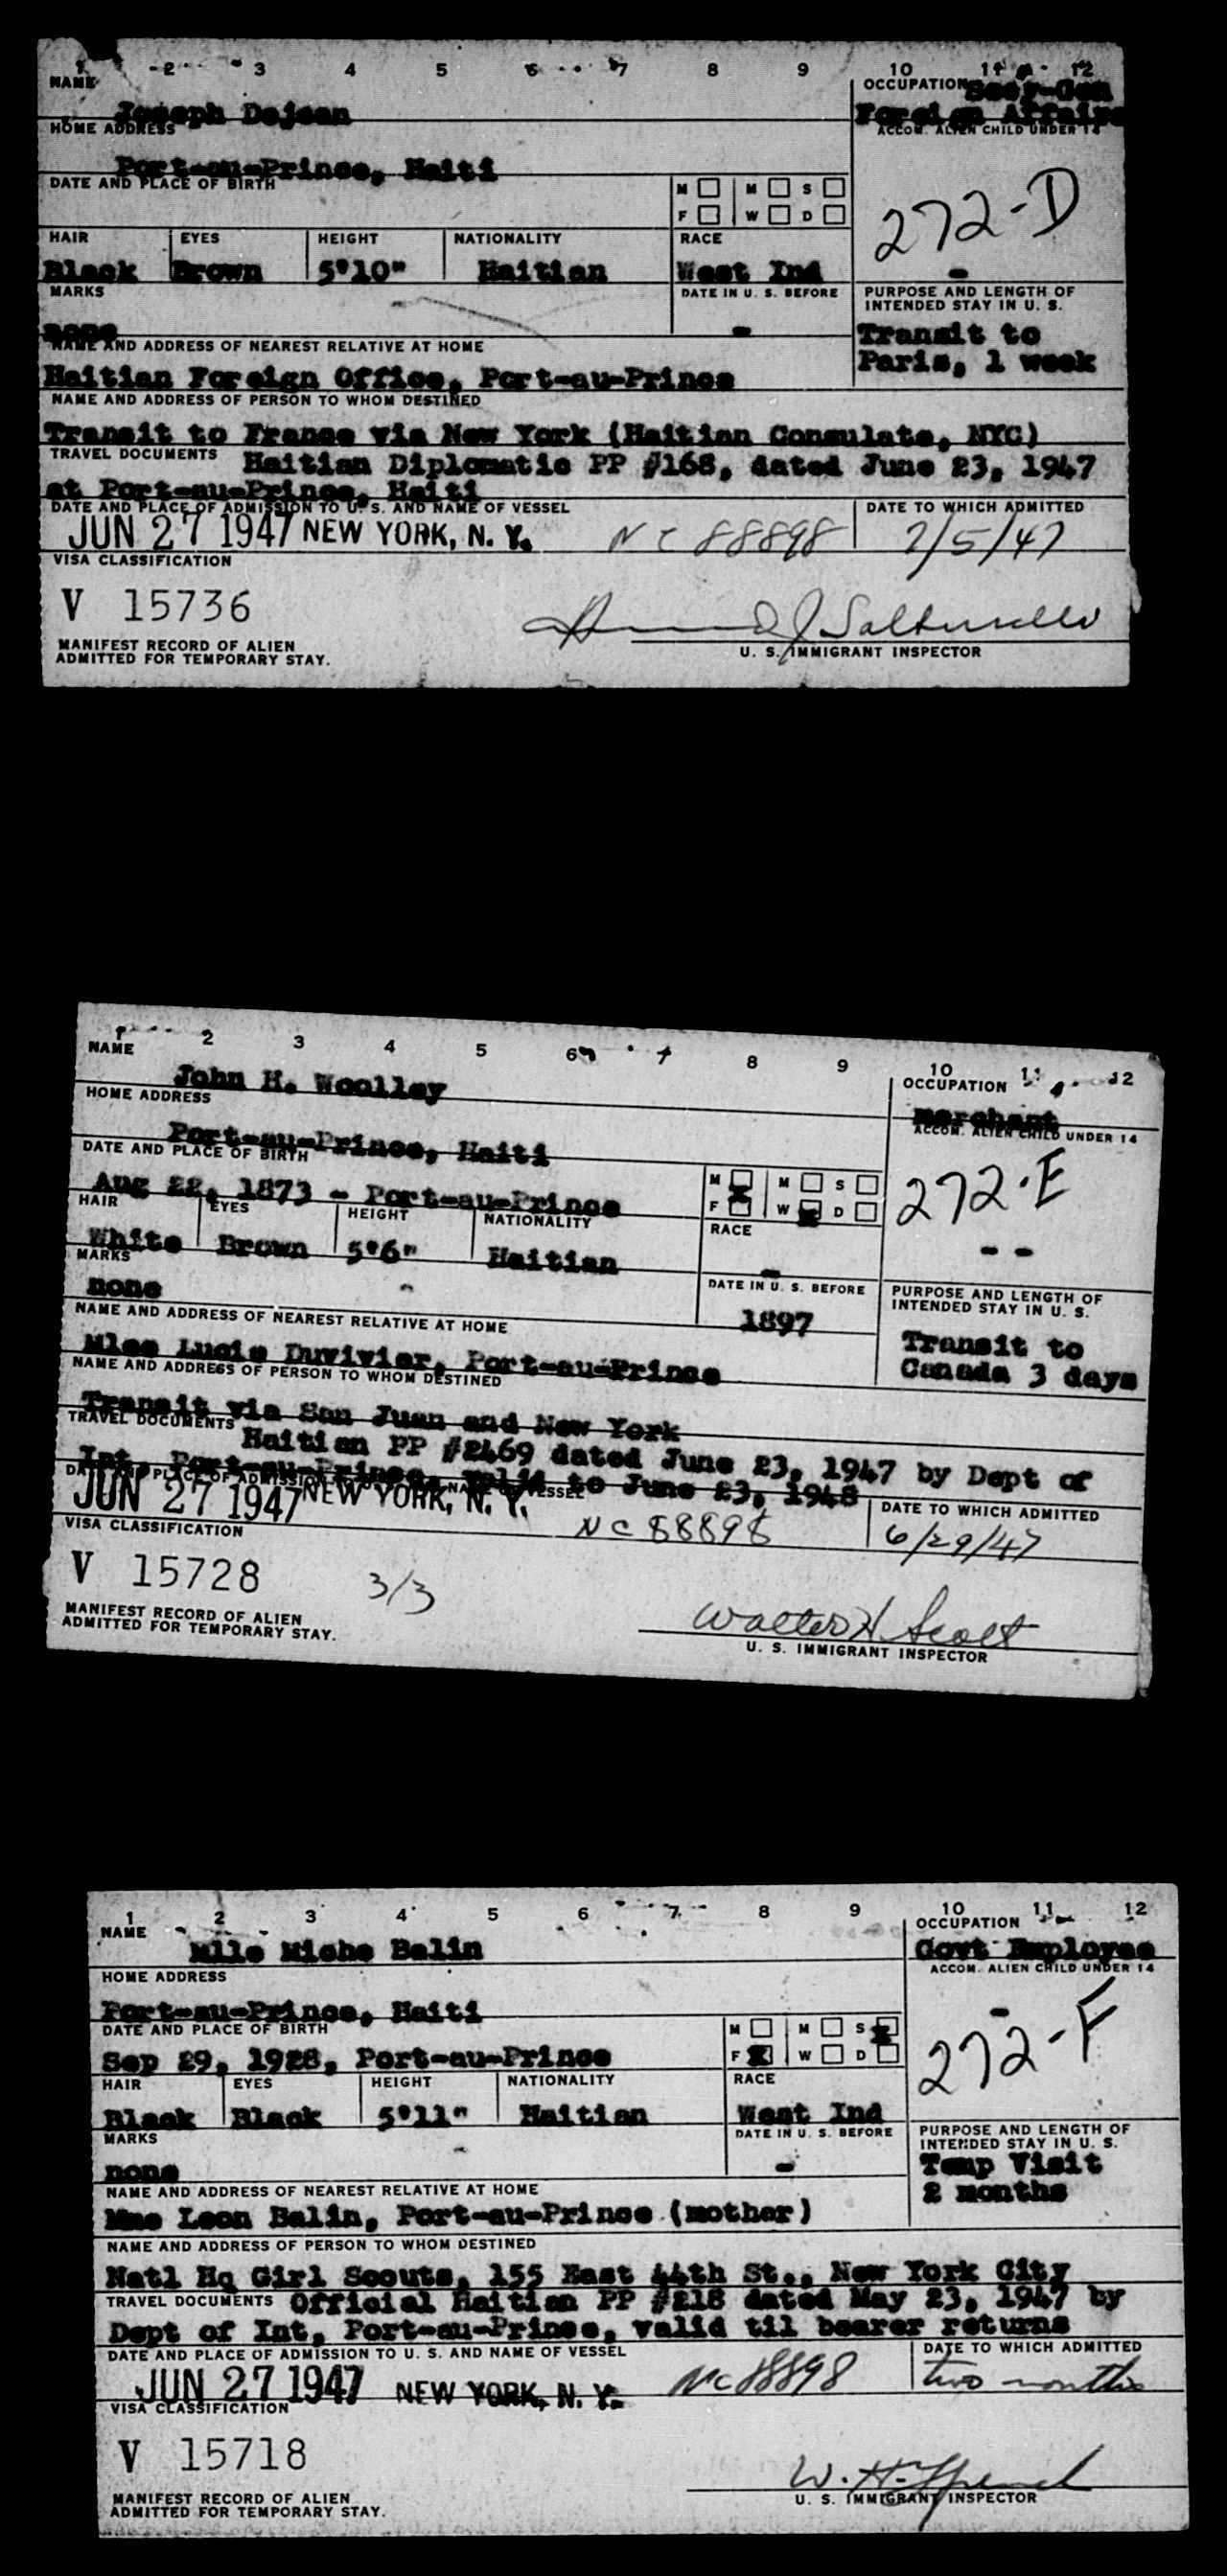 1 2 3 4 5 6 7 8 9 10 11 12
NAME
OCCUPATION Secy-Gen
Joseph Dejean
Foreign Affairs
HOME ADDRESS
ACCOM. ALIEN CHILD UNDER 14
Port-au-Prince, Haiti
DATE AND PLACE OF BIRTH
M M S
F W D
272-D
HAIR EYES HEIGHT NATIONALITY RACE
Black Brown 5'10" Haitian West Ind
-
MARKS DATE IN U. S. BEFORE PURPOSE AND LENGTH OF
INTENDED STAY IN U. S.
none - Transit to
NAME AND ADDRESS OF NEAREST RELATIVE AT HOME
Paris, 1 week
Haitian Foreign Office, Port-au-Prince
NAME AND ADDRESS OF PERSON TO WHOM DESTINED
Transit to France via New York (Haitian Consulate, NYC)
TRAVEL DOCUMENTS Haitian Diplomatic PP #168, dated June 23, 1947
at Port-au-Prince, Haiti
DATE AND PLACE OF ADMISSION TO U. S. AND NAME OF VESSEL DATE TO WHICH ADMITTED
JUN 27 1947 NEW YORK, N. Y. NC 88898 7/5/47
VISA CLASSIFICATION
V 15736
MANIFEST RECORD OF ALIEN
ADMITTED FOR TEMPORARY STAY.
U. S. IMMIGRANT INSPECTOR
1 2 3 4 5 6 7 8 9 10 11 12
NAME
OCCUPATION
John H. Woolley
HOME ADDRESS
merchant
ACCOM. ALIEN CHILD UNDER 14
Port-au-Prince, Haiti
DATE AND PLACE OF BIRTH
M M S
F W D
272-E
Aug 22, 1873 - Port-au-Prince
HAIR EYES HEIGHT NATIONALITY RACE
White Brown 5'6" Haitian -
- -
MARKS DATE IN U. S. BEFORE PURPOSE AND LENGTH OF
INTENDED STAY IN U. S.
none 1897
NAME AND ADDRESS OF NEAREST RELATIVE AT HOME
Transit to
Canada 3 days
Mlee Lucie Duvivier, Port-au-Prince
NAME AND ADDRESS OF PERSON TO WHOM DESTINED
Transit via San Juan and New York
TRAVEL DOCUMENTS Haitian PP #2469 dated June 23, 1947 by Dept of
Int, Port-au-Prince, valid to June 23, 1948
DATE AND PLACE OF ADMISSION NAME OF VESSEL DATE TO WHICH ADMITTED
JUN 27 1947 NEW YORK, N. Y. NC 88898 6/29/47
VISA CLASSIFICATION
V 15728 3/3
MANIFEST RECORD OF ALIEN
ADMITTED FOR TEMPORARY STAY.
Walter H Scott
U. S. IMMIGRANT INSPECTOR
1 2 3 4 5 6 7 8 9 10 11 12
NAME
OCCUPATION
Mlle Miche Balin
Govt Employee
HOME ADDRESS
ACCOM. ALIEN CHILD UNDER 14
Port-au-Prince, Haiti -
DATE AND PLACE OF BIRTH
M M S
F W D
272-F
Sep 29, 1928, Port-au-Prince
HAIR EYES HEIGHT NATIONALITY RACE
Black Black 5'11" Haitian West Ind
MARKS DATE IN U. S. BEFORE PURPOSE AND LENGTH OF
INTENDED STAY IN U. S.
none - Temp Visit
2 months
NAME AND ADDRESS OF NEAREST RELATIVE AT HOME
Mme Leon Balin, Port-au-Prince (mother)
NAME AND ADDRESS OF PERSON TO WHOM DESTINED
Natl Hq Girl Scouts, 155 East 44th St., New York City
TRAVEL DOCUMENTS Official Haitian PP #218 dated May 23, 1947 by
Dept of Int, Port-au-Prince, valid til bearer returns
DATE AND PLACE OF ADMISSION TO U. S. AND NAME OF VESSEL DATE TO WHICH ADMITTED
JUN 27 1947 NEW YORK, N. Y. NC 88898 two months
VISA CLASSIFICATION
V 15718
MANIFEST RECORD OF ALIEN
ADMITTED FOR TEMPORARY STAY.
U. S. IMMIGRANT INSPECTOR